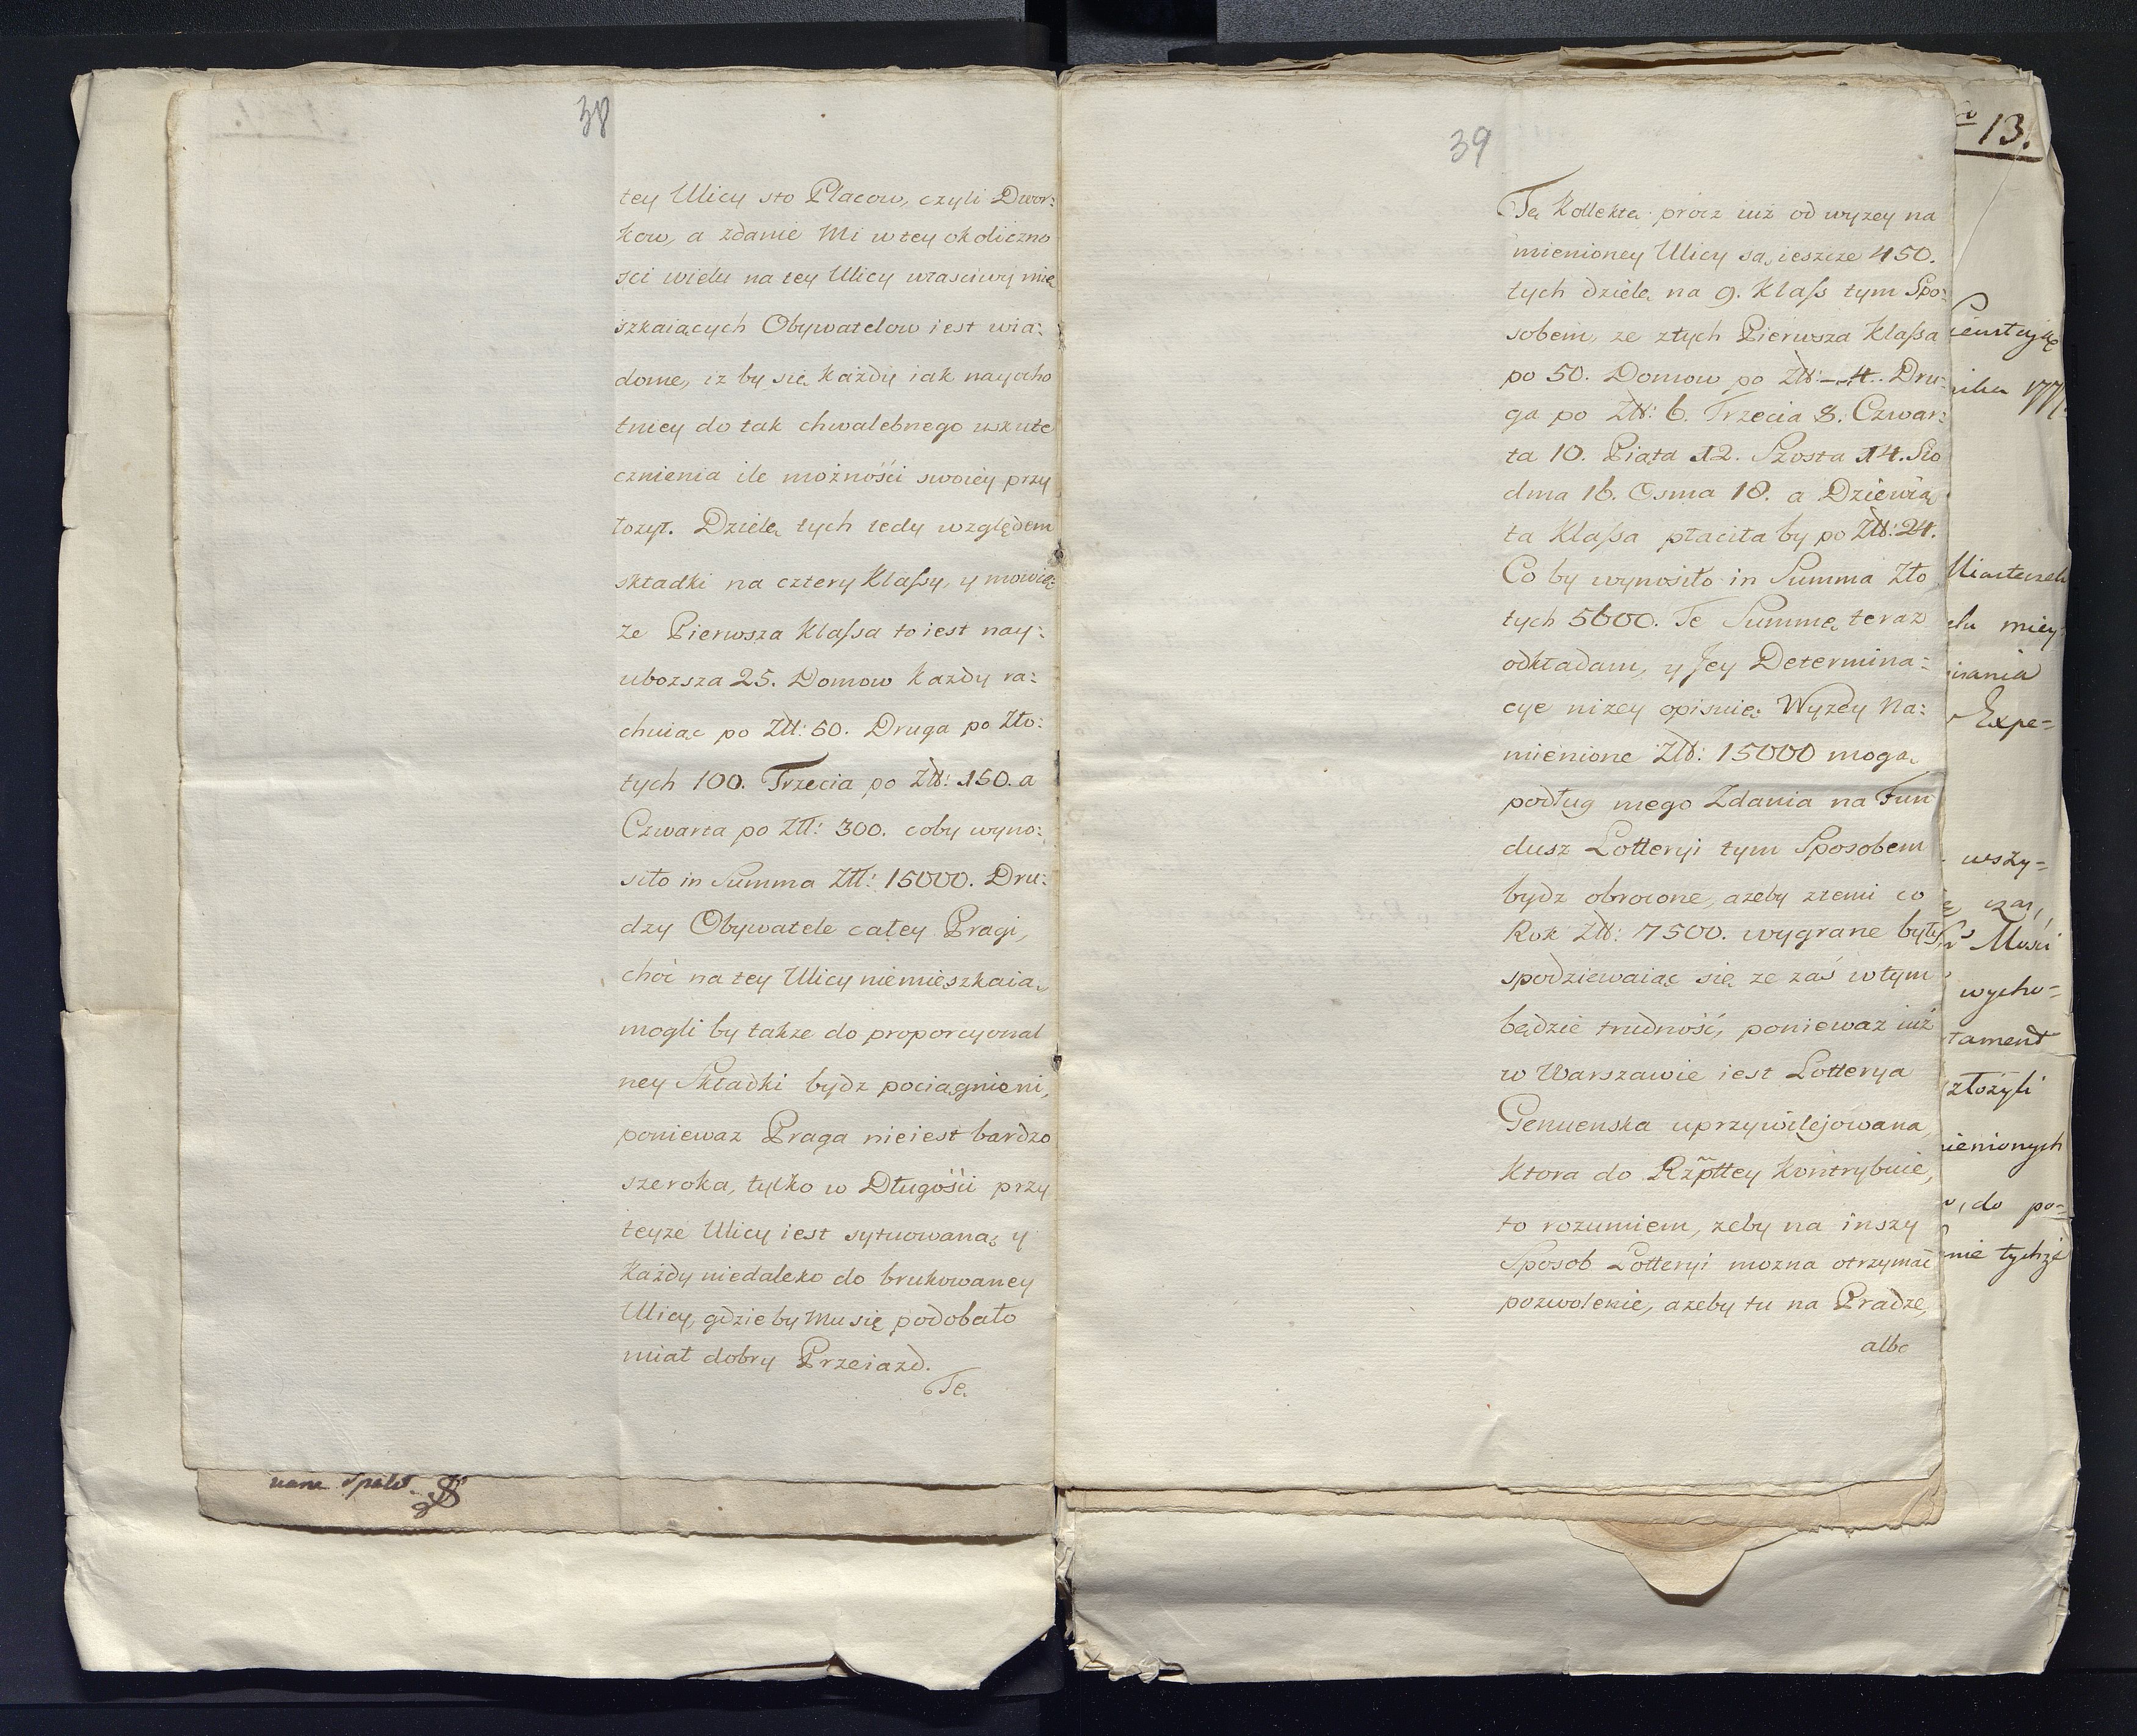 38
tey Ulicy sto Placow, czyli Dwor:
kow, a zdanie Mi w tey okoliczno
sci wielu na tey Ulicy wlasciwy mie
szkaiących Obywatelow iest wia:
dome, iz by się każdy iak naycho
tniey do tak chwalebnego uskute
cznienia ile możności swoiey przy
łozył. Dzielę tych tedy względem
składki na cztery Klaſsy, y mowię:
ze Pierwsza Klaſsa to iest nay:
ubozsza 25. Domow kazdy ra:
chuiąc po Złł: 50. Druga po Zło:
tych 100. Trzecia po Złł: 150. a
Czwarta po Złł: 300. coby wyno:
siło in Summa Złł: 15000. Dru:
dzy Obywatele całey Pragi,
choć na tey Ulicy niemieszkaią,
mogli by takze do proporcyonal
ney Składki bydz pociągnieni,
poniewaz Praga nieiest bardzo
szeroka, tylko w Długości przy
teyze Ulicy iest sytuowana, y
Każdy niedaleko do brukowaney
Ulicy, gdzie by Mu się podobało
miał dobry Przeiazd.
Tę
nane Spald.
39
Tę Kollektę procz iuż od wyzey na
mienioney Ulicy są ieszcze 450.
tych dzielę na 9. Klaſs tym Spo:
sobem, ze z tych Pierwsza Klaſsa
po 50. Domow po Złł: _ 4. Dru:
ga po Złł: 6. Trzecia 8. Czwar:
ta 10. Piąta 12. Szosta 14. Sio
dma 16. Osma 18. a Dziewią
ta Klaſsa płaciła by po Złł: 24.
Co by wynosiło in Summa Zło
tych 5600. Te Summę teraz
odkładam, y Jey Determina:
cye nizey opisuię: Wyzey Na:
mienione Złł: 15000 mogą
podług mego Zdania na Fun
dusz Lotteryi tym Sposobem
bydz obrocone, azeby z temi co
Rok Złł: 7500. wygrane były,
spodziewaiąc się ze zaś w tym
będzie trudność, poniewaz iuż
w Warszawie iest Lotterya
Genuenska uprzywilejowana,
ktora do Rzpttey kontrybuie,
to rozumiem, zeby na inszy
Sposob Lotteryi mozna otrzymać
pozwolenie, azeby tu na Pradze,
albo
13.
Expe=
wszy=
czas,
wycho=
tament
złożyli
nienionych
, do po=
nie tychże